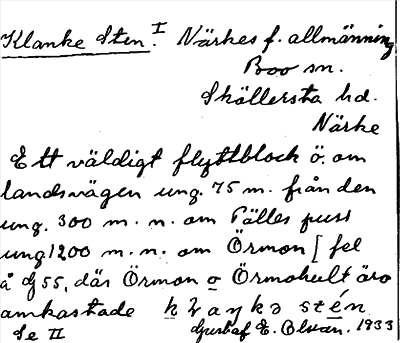 Klanke Sten. I Närkes f. allmänning
Boo sn.
Sköllersta hd.
Närke
Ett väldigt flyttblock ö. om
landsvägen ung. 75 m. från den
ung. 300 m. n. om Pälles puss
ung 1200 m. n. om Örmon [fel
å Gj 55, där Örmon o Örmohult äro
amkastade
Se II Gustaf E. Olson. 1933